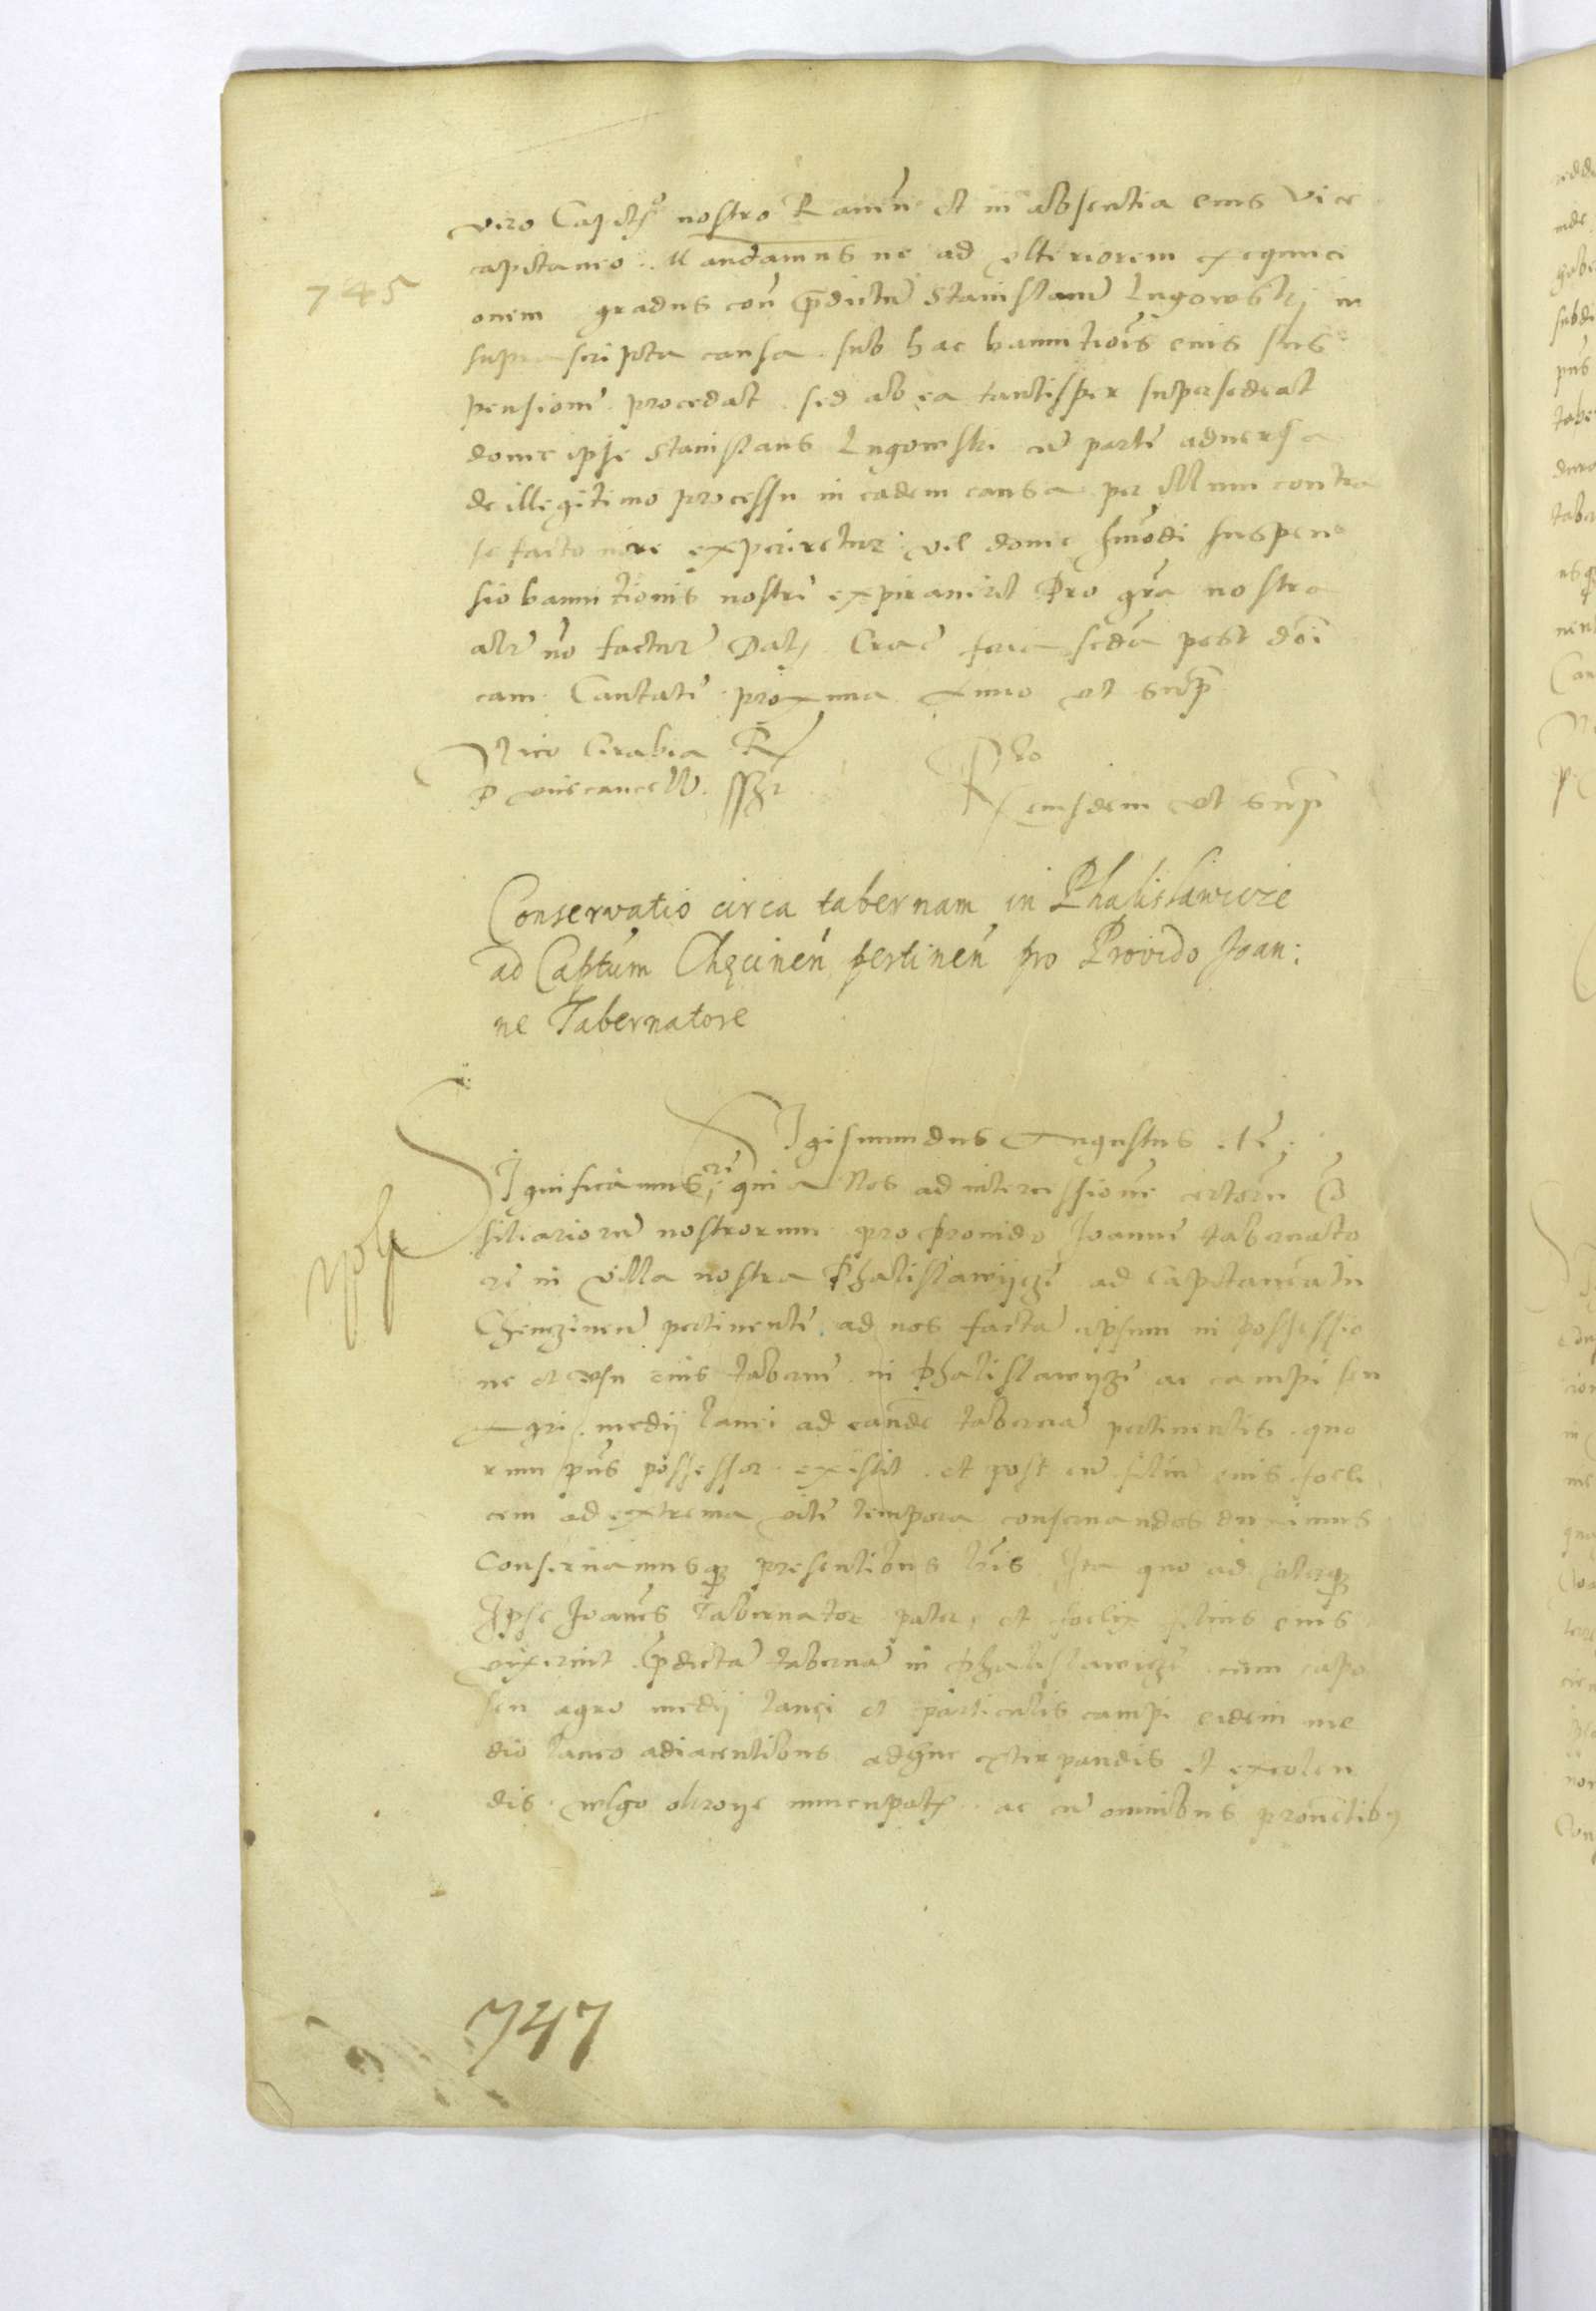 viro Capit̃ nostro Rawen̄ et in absentia eius Vice
capitaneo. Mandamus ne ad vlteriorem exequuci
745
onem gradus coñ p̃dictũ Stanislaum̃ Lugowskj in
supra scripta causa sub hac bannitiõis eius sus
pensione procedat sed ab ea tantisper supersedeat
donec ipse Stanislaus Lugowski cũ parte aduersa
de illegitimo processu in eadem causa per illum contra
se facto iure experiretur: vel donec hm̃odi suspen
sio bannitionis nostre expirauerit Pro gr̃a nostra
altr̃ nõ factur̃ Dat̃ Crac̃ feria scđa post dõi
cam Cantate proxima Anno vt supr̃
Nico Grabia R
P viicancell̃. sszt
Rõ
eiusdem vt supr̃
Conservatio circa tabernam in Phalislawicze
ad Captum Chęcineń pertineń pro Provido Joan:
ne Tabernatore
Sigismundus Augustus etc̃;
Significamus etc̃; quia Nos ad intercessionem certorũ Cõ
siliariorũ nostrorum pro prouido Joanne tabernato
re in villa nostra Phalislawijcze ad Capitaneatũ
Chenczinen̄ pertinente ad nos factã ipsum in possessio
ne et vsu eius taberne in Phalislawijcze ac campi seu
Agri medij lanei ad eandẽ tabernã pertinentis quo
rum pñs possessor existit et post eũ filiũ eius foeli
cem ad extrema vite tempora conseruandos duximus
Conseruamusq; presentibus lr̃is Ita quo ad vterq;
Ipse Joannes Tabernator pater, et foelix filius eius
vixerint p̃dictã tabernã in Phalislawicze cum capo
seu agro medij lanei et particulis campi eidem me
dio laneo adiacentibus adhuc extirpandis et excolen
dis vulgo obroije nuncupat̃ ac cũ omnibus prouẽtib9
747